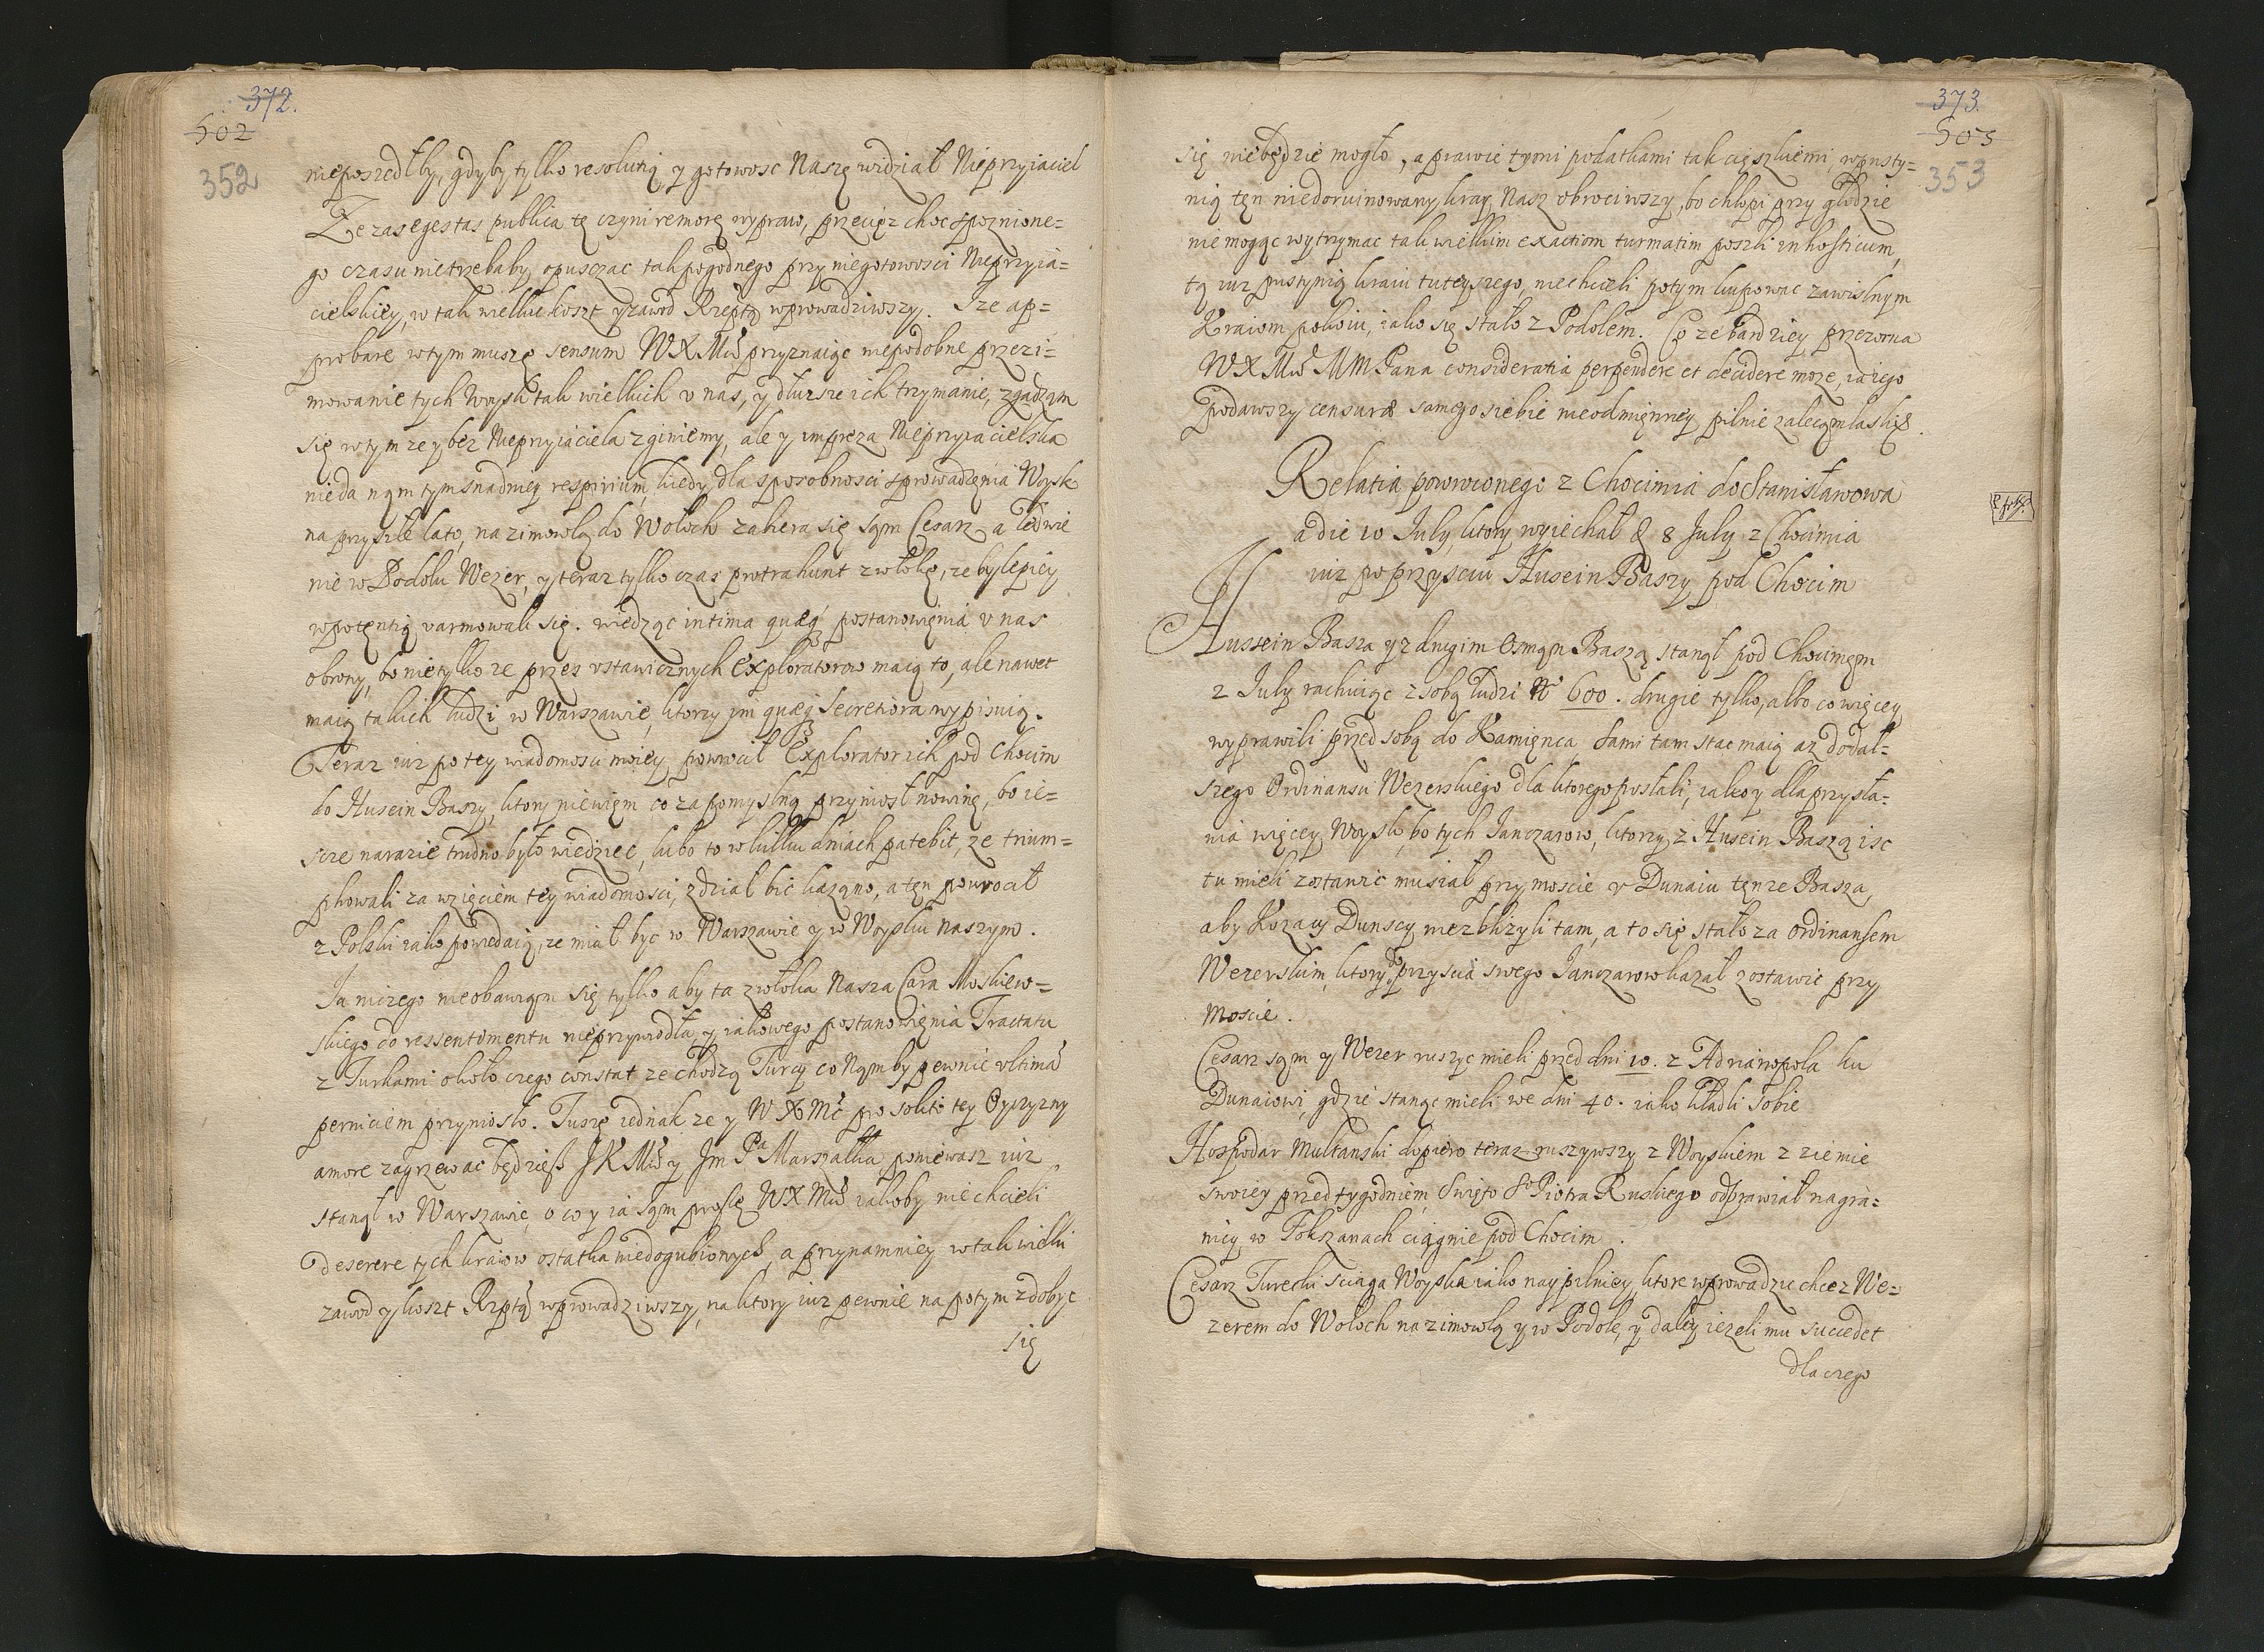 372.
502
352
nieposzedłby, gdyby tylko resolutią y gotowosc Naszę widział Nieprzyiaciel
Ze zas egestas publica tę czyni remorę wypraw, przecięz choc spoznione=
go czasu nietrzebaby opusczac tak pogodnego przy niegotowosci Nieprzyia=
cielskiey, w tak wielki koszt y zawod Rzeptą wprowadziwszy. Ize ap=
probare wtym muszę sensum WXMci przyznaiąc niepodobne przezi=
mowanie tych Woysk tak wielkich v nas, y dłuzsze ich trzymanie, zgadząm
się wtym ze y bez Nieprzyiaciela zginiemy, ale y impreza Nieprzyiacielska
nieda nąm tym snadniey respirium, kiedy dla sposobnosci sprowadzęnia Woysk
na przyszłe lato, na zimowlą do Wołoch zabiera się sąm Cesarz a ledwie
nie w Podolu Wezer, y teraz tylko czas protrahunt zwłoką, ze by lepiey
wpotęntią varmowali się. wiedząc intima quæq postanowięnia v nas
obrony, bo nietylko ze przez vstawicznych Exploratorow maią to, ale nawet
maią takich ludzi w Warszawie, ktorzy im quæq Secretiora wypisuią.
Teraz iuz po tey wiadomosci moiey, powrocił Explorator ich pod Chocim
do Husein Baszy, ktory niewięm co za pomyslną przyniosł nowinę, bo ie=
szcze narazie trudno było wiedziec, lubo to w kilku dniach patebit, ze trium=
phowali za wzięciem tey wiadomosci, z dział bic kaząno, a tęn powrocił
z Polski iako powiedaią, ze miał byc w Warszawie y w Woysku naszym.
Ia niczego nieobawiąm się tylko aby ta zwłoka Nasza Cara Moskiew=
skiego do ressentimentu nieprzywiodła, y iakowego postanowięnia Tractatu
z Turkami około czego constat ze chodzą Turcy co Nąm by pewnie vltimã
perniciem przyniosło. Tuszę iednak ze y WXMć pro solito tey Oyczyzny
amore zagrzewac będziesz JKMci y Jm Pa Marszałka, poniewasz iuz
stanął w Warszawie, o co y ia sąm proszę WXMci iakoby nie chcieli
deserere tych kraiow ostatka niedogubionych, a przynamniey wtak wielki
zawod y koszt Rzptą wprowadziwszy, na ktory iuz pewnie napotym zdobyc
się
373.
503
353
się niebędzie mogło, a prawie tymi podatkami tak cięszkiemi, wpusty=
nią tęn niedoruinowany kray Nasz obrociwszy, bo chłopi przy głodzie
nie mogąc wytrzymac tak wielkim exactiom turmatim poszli in hosticum,
tą iuz pustynią kraiu tuteyszego, niechcieli potym kupowac zawislnym
Kraiom pokoiu, iako się stało z Podolem. Co ze bardziey przezorna
WXMci MM Pana consideratia perpendere et decidere moze, ia iego
podawszy censuræ samego siebie nieodmięnney pilnie zalecąm łaskię.
Relatia powroconego z Chocimia do Stanisławowa
a die 10 July, ktory wyiechał d 8 July z Chocimia
iuz po przysciu Husein Baszy pod Chocim
Hussein Basza y z drugim Osmąn Baszą stanął pod Chocimęm
2 July rachuiąc z sobą ludzi No 600. drugie tylko, albo co więcey
wyprawili przed sobą do Kamięnca Sami tam stac maią az do dal=
szego Ordinansu Wezerskiego dla ktorego posłali, iako y dla przysła=
nia więcey Woysk, bo tych Ianczarow, ktorzy z Husein Baszą isc
tu mieli zostawic musiał przy moscie v Dunaiu tęnze Basza,
aby Kozacy Dunscy niezbliżyli tam, a to się stało za Ordinansem
Wezerskim, ktory do przyscia swego Ianczarow kazał zostawic przy
Moscie.
Cesarz sąm y Wezer ruszyc mieli przed dni 10. z Adrianopola ku
Dunaiowi, gdzie stanąc mieli we dni 40. iako kładli sobie
Hospodar Multanski dopiero teraz ruszywszy z Woyskiem z ziemie
swoiey przed tygodniem Swięto So Piotra Ruskiego odprawiał na gra=
nicy w Fokszanach ciągnie pod Chocim.
Cesarz Turecki sciąga Woyska iako naypilniey, ktore wprowadzic chce z We=
zerem do Wołoch na zimowlą y w Podole, y daley iezeli mu succedet
dla czego